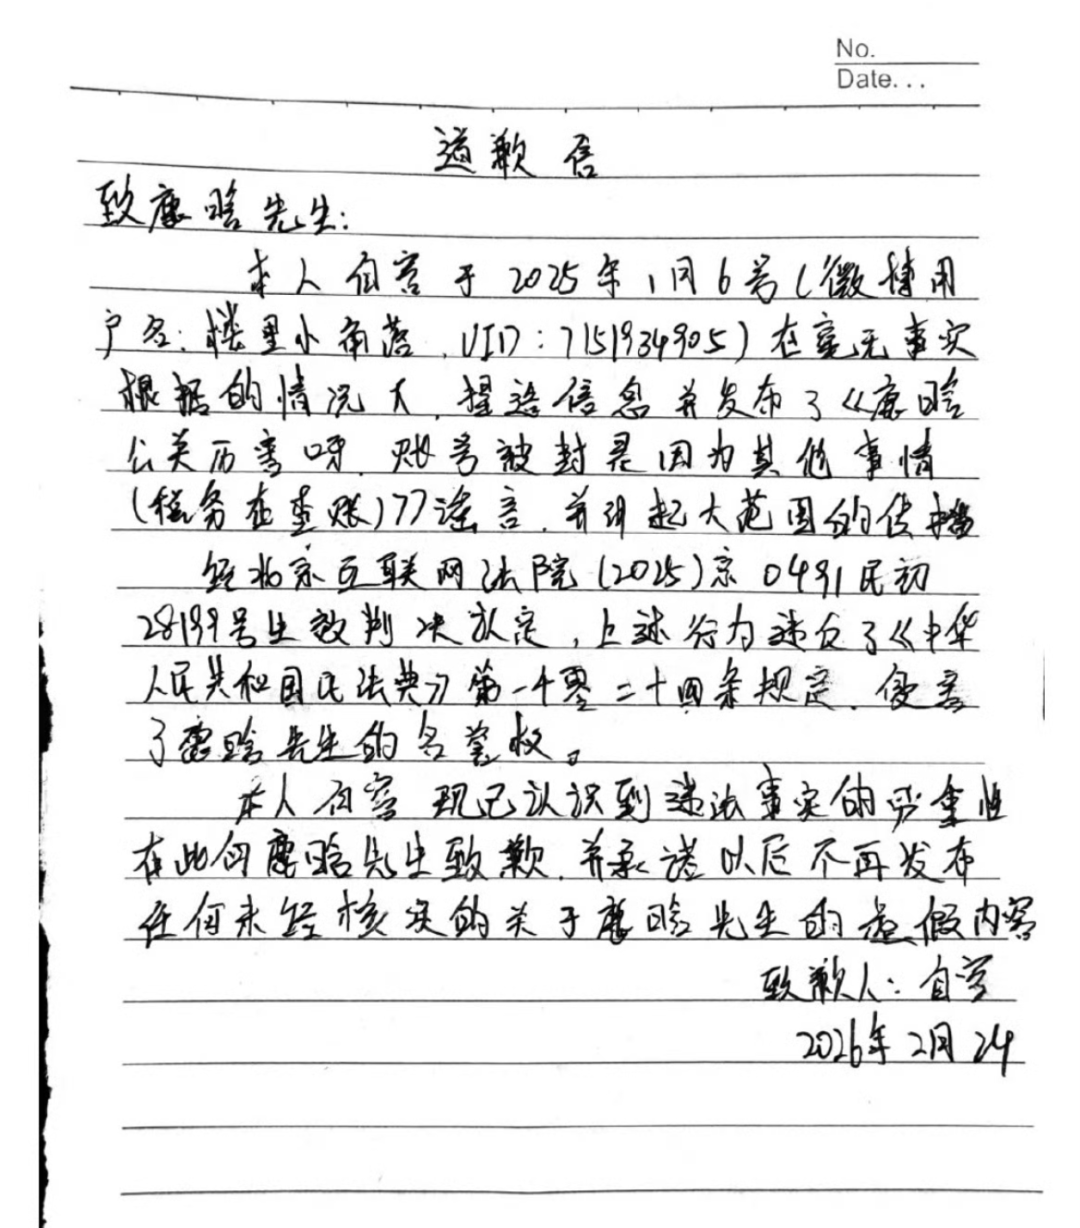 No.
Date...
道歉信
致鹿晗先生:
本人白容于2025年1月6号(微博用
户名:楼里小角落,UID:7151934905)在毫无事实
根据的情况下,捏造信息并发布了《鹿晗
公关历害呀,账号被封是因为其他事情
(税务在查账)77谣言,并引起大范围的传播
经北京互联网法院(2025)京0491民初
28199号生效判决认定,上述行为违反了《中华
人民共和国民法典》第一千零二十四条规定,侵害
了鹿晗先生的名誉权。
本人白容现已认识到违法事实的严重性
在此向鹿晗先生致歉,并承诺以后不再发布
任何未经核实的关于鹿晗先生的虚假内容
致歉人:
2026年2月24